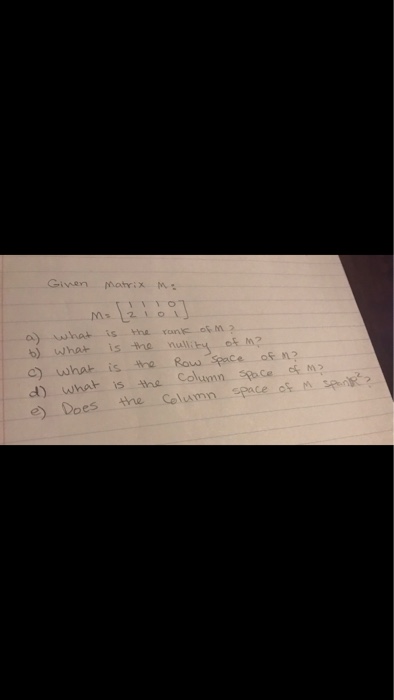 Given Matrix M:
M= [1 1 1 0
2 1 0 1]
a) what is the rank of M?
b) what is the nullity of M?
c) what is the Row Space of M?
d) what is the Column Space of M?
e) Does the Column space of M span R²?